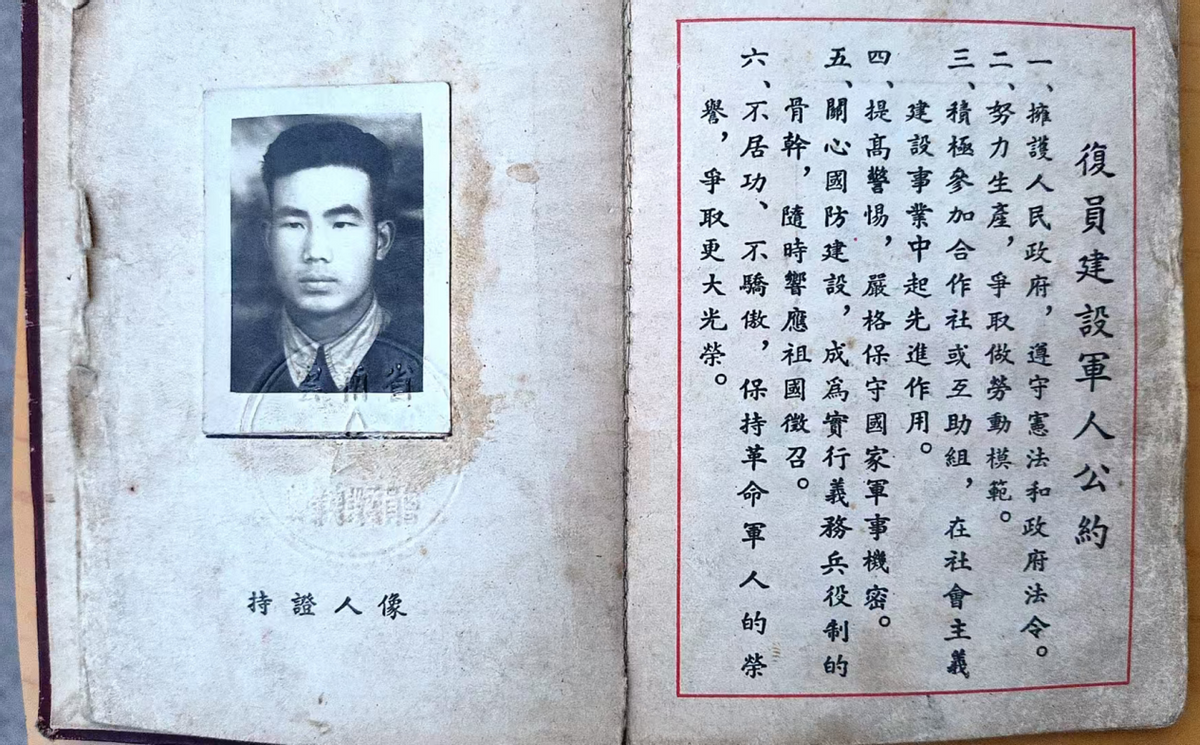 復員建設軍人公約
一、擁護人民政府，遵守憲法和政府法令。
二、努力生產，爭取做勞動模範。
三、積極參加合作社或互助組，在社會主義
建設事業中起先進作用。
四、提高警惕，嚴格保守國家軍事機密。
五、關心國防建設，成為實行義務兵役制的
骨幹，隨時響應祖國徵召。
六、不居功、不驕傲，保持革命軍人的榮
譽，爭取更大光榮。
持證人像